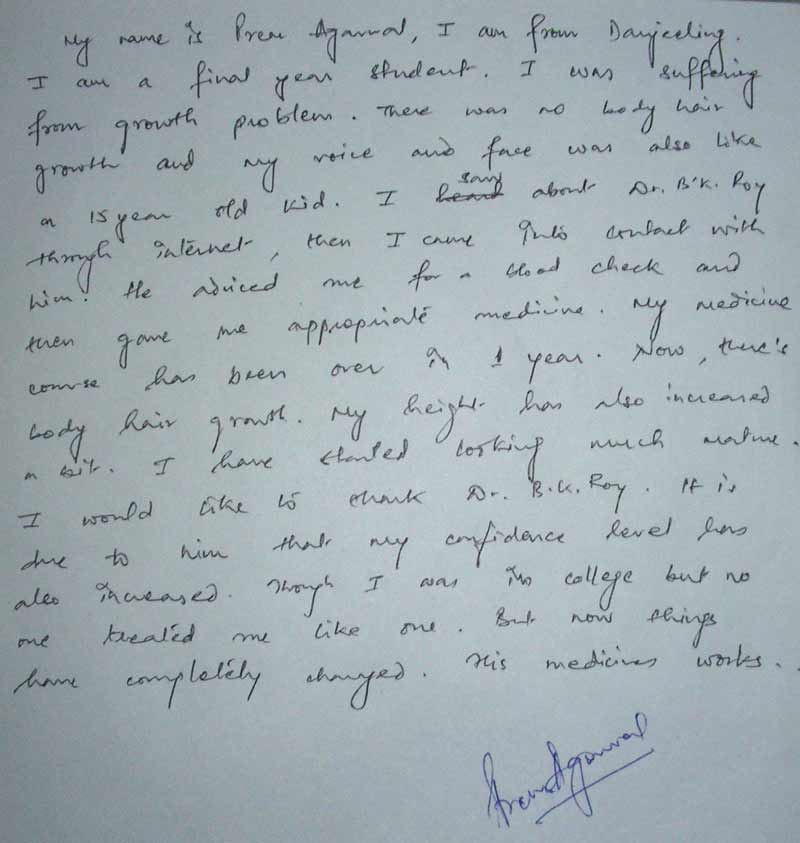 My name is Prem Agarwal, I am from Darjeeling.
I am a final year student. I was suffering
from growth problem. There was no body hair
growth and my voice and face was also like
a 15 year old kid. I heard saw about Dr. B.K. Roy
through internet, then I came into contact with
him. He adviced me for a blood check and
then gave me appropriate medicine. My medicine
course has been over in 1 year. Now, there's
body hair growth. My height has also increased
a bit. I have started looking much mature.
I would like to thank Dr. B.K. Roy. It is
due to him that my confidence level has
also increased. Though I was in college but no
one treated me like one. But now things
have completely changed. His medicines works.
Prem Agarwal